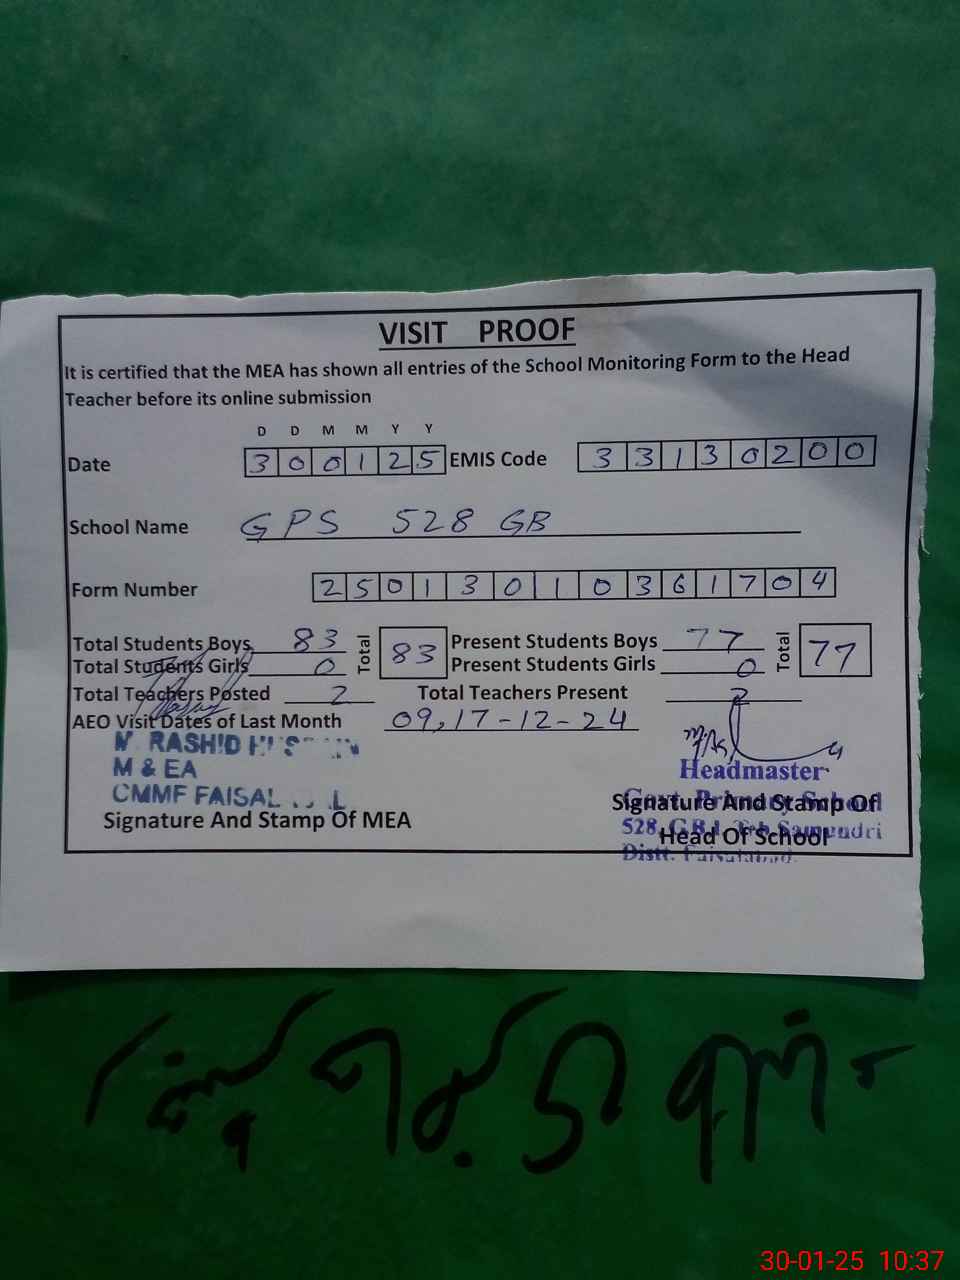 VISIT PROOF
It is certified that the MEA has shown all entries of the School Monitoring Form to the Head
Teacher before its online submission
D D M M Y Y
Date 300125 EMIS Code 33130200
School Name GPS 528 GB
Form Number 25013010361704
Total Students Boys 83 Total 83 Present Students Boys 77 Total 77
Total Students Girls 0 Present Students Girls 0
Total Teachers Posted 2 Total Teachers Present 2
AEO Visit Dates of Last Month 09,17-12-24
M. RASHID HUSSAIN
M & EA
CMMF FAISAL
Signature And Stamp Of MEA
Headmaster
Govt. Primary School
Signature And Stamp Of
528, G.B. Teh Samundri
Head Of School
Distt. Faisalabad.
30-01-25 10:37